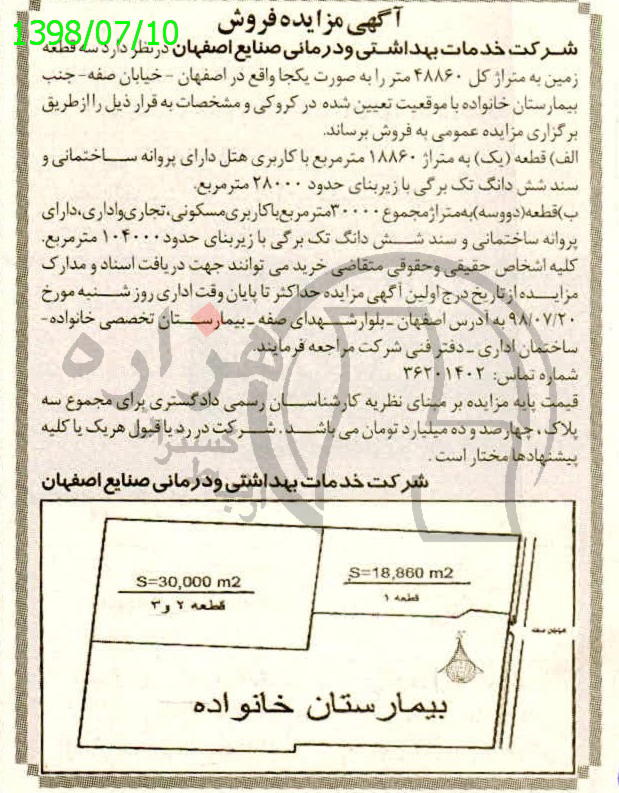 آگهی مزایده فروش
1398/07/10
شرکت خدمات بهداشتی و درمانی صنایع اصفهان در نظر دارد سه قطعه
زمین به متراژ کل ۴۸۸۶۰ متر را به صورت یکجا واقع در اصفهان - خیابان صفه - جنب
بیمارستان خانواده با موقعیت تعیین شده در کروکی و مشخصات به قرار ذیل را از طریق
برگزاری مزایده عمومی به فروش برساند.
الف) قطعه (یک) به متراژ ۱۸۸۶۰ مترمربع با کاربری هتل دارای پروانه ساختمانی و
سند شش دانگ تک برگی با زیربنای حدود ۲۸۰۰۰ مترمربع.
ب) قطعه (دو و سه) به متراژ مجموع ۳۰۰۰۰ مترمربع با کاربری مسکونی، تجاری و اداری، دارای
پروانه ساختمانی و سند شش دانگ تک برگی با زیربنای حدود ۱۰۴۰۰۰ مترمربع.
کلیه اشخاص حقیقی و حقوقی متقاضی خرید می توانند جهت دریافت اسناد و مدارک
مزایده از تاریخ درج اولین آگهی مزایده حداکثر تا پایان وقت اداری روز شنبه مورخ
۹۸/۰۷/۲۰ به آدرس اصفهان - بلوار شهدای صفه - بیمارستان تخصصی خانواده -
ساختمان اداری - دفتر فنی شرکت مراجعه فرمایند.
شماره تماس: ۳۶۲۰۱۴۰۲
قیمت پایه مزایده بر مبنای نظریه کارشناسان رسمی دادگستری برای مجموع سه
پلاک، چهارصد و ده میلیارد تومان می باشد. شرکت در رد یا قبول هریک یا کلیه
پیشنهادها مختار است.
شرکت خدمات بهداشتی و درمانی صنایع اصفهان
S=18,860 m2
قطعه ۱
S=30,000 m2
قطعه ۲ و ۳
بیمارستان خانواده
هزاره